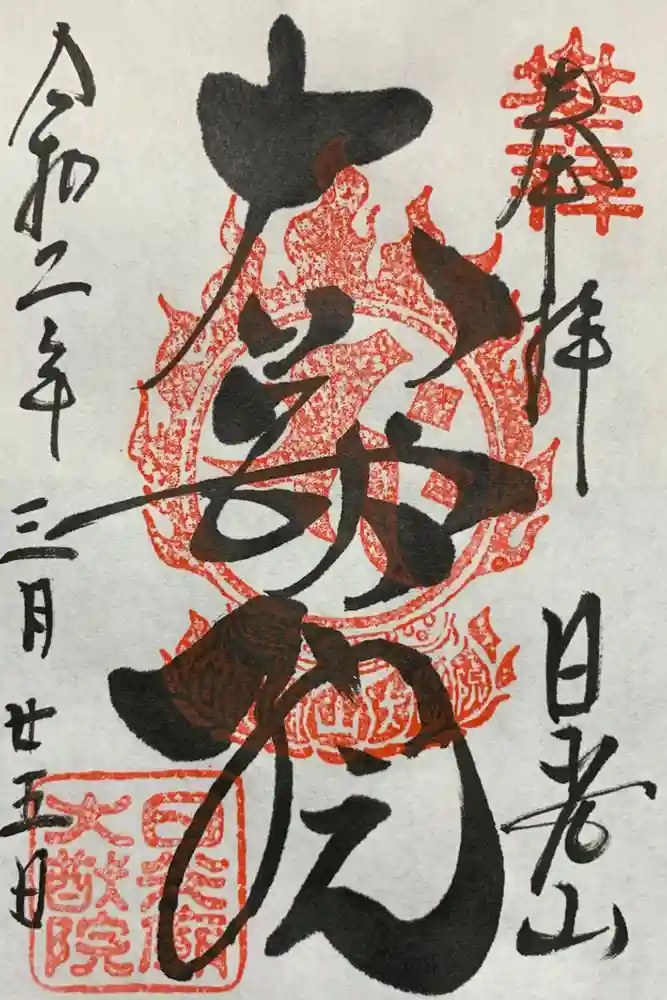 奉拝
日光山
大猷院
令和二年
三月廿五日
日光廟
大猷院